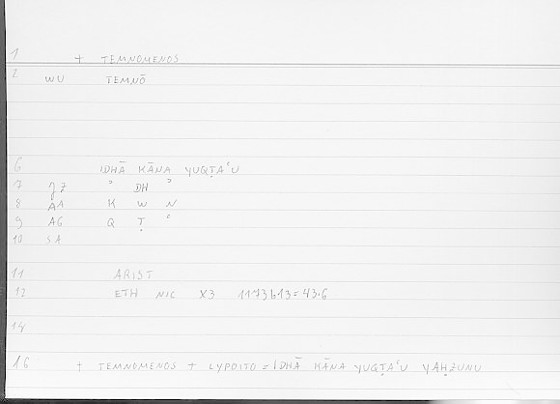 1 + TEMNOMENOS
2 WU TEMNŌ
6 IDHĀ KĀNA YUQṬAʿU
7 ZZ ʾ DH ʾ
8 AA K W N
9 AG Q Ṭ ʿ
10 SA
11 ARIST
12 ETH NIC X3 1173b13=43.6
14
16 + TEMNOMENOS + LYPOITO = IDHĀ KĀNA YUQṬAʿU YAḤZUNU